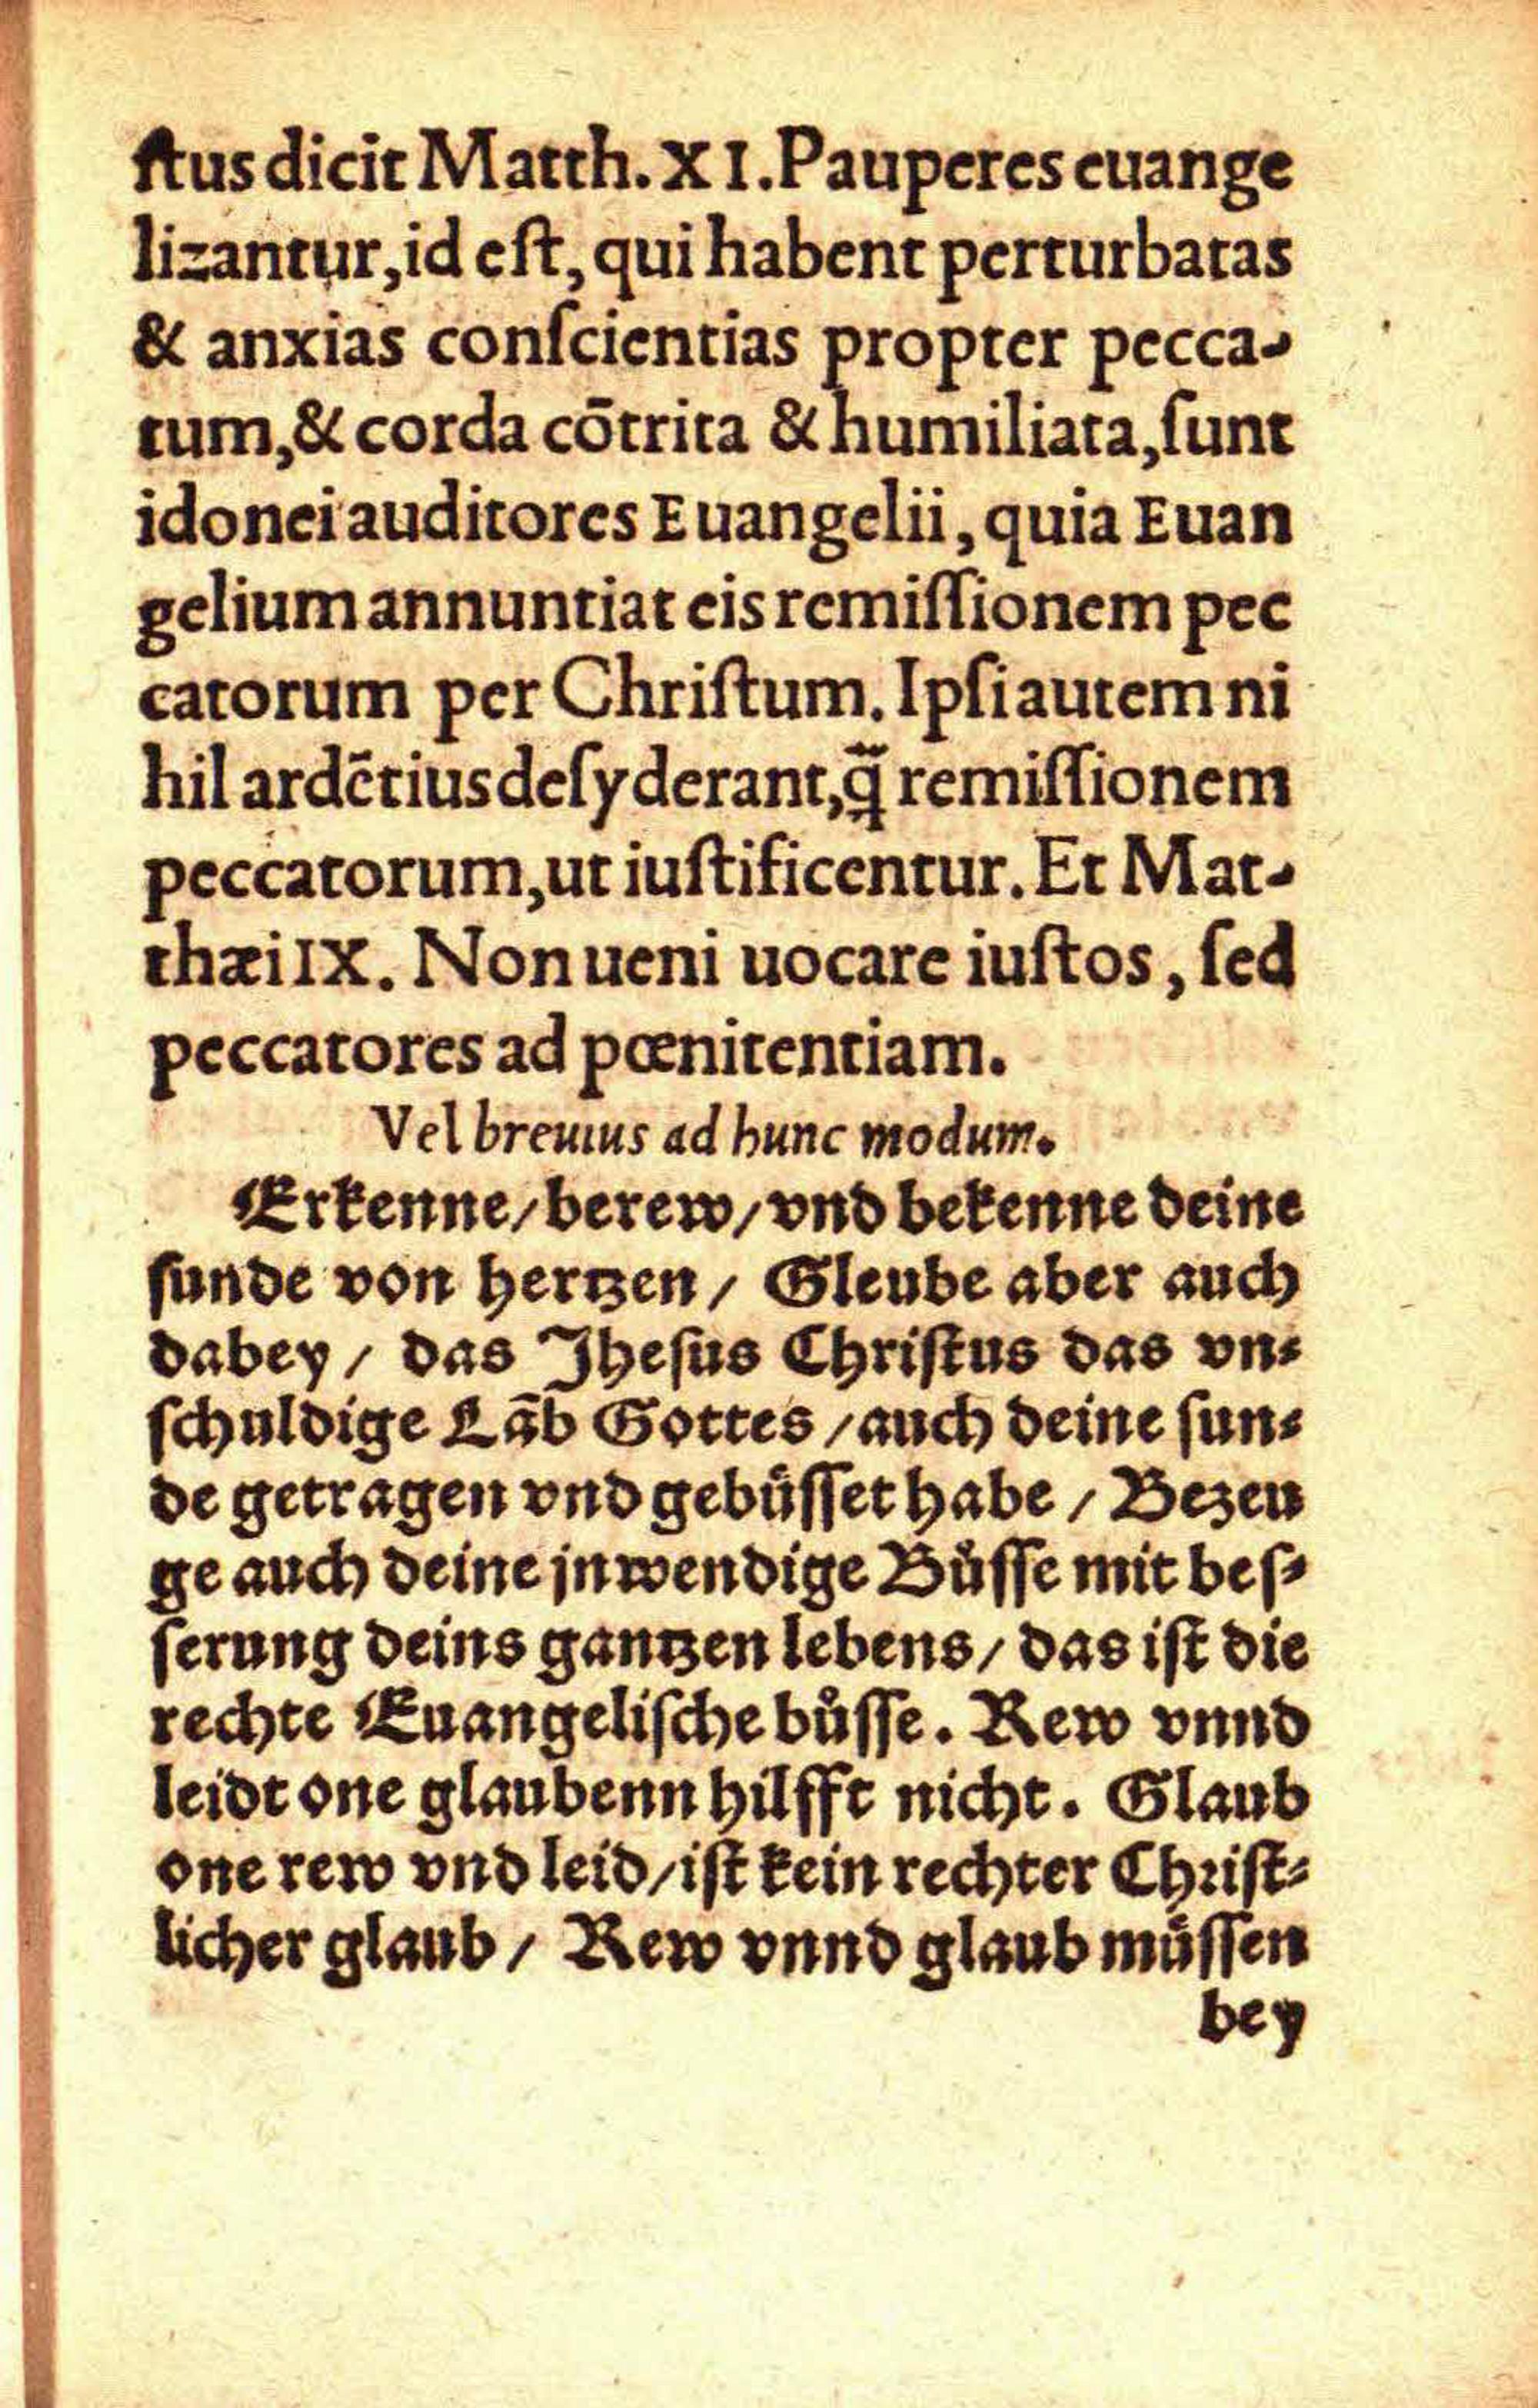 ſtus dicit Matth. XI. Pauperes euange
lizantur, id eſt, qui habent perturbatas
& anxias conſcientias propter pecca-
tum, & corda cōtrita & humiliata, ſunt
idonei auditores Euangelii, quia Euan
gelium annuntiat eis remiſſionem pec
catorum per Chriſtum. Ipſi autem ni
hil ardētius deſyderant, q̃ remiſſionem
peccatorum, ut iuſtificentur. Et Mat-
thæi IX. Non ueni uocare iuſtos, ſed
peccatores ad pœnitentiam.
Vel breuius ad hunc modum.
Erkenne/ berew/ vnd bekenne deine
ſunde von hertzen/ Gleube aber auch
dabey/ das Jheſus Chriſtus das vn⸗
ſchuldige Lãb Gottes/ auch deine ſun⸗
de getragen vnd gebuͤſſet habe/ Bezeu
ge auch deine jnwendige Buͤſſe mit beſ⸗
ſerung deins gantzen lebens/ das iſt die
rechte Euangeliſche buͤſſe. Rew vnnd
leidt one glaubenn hilfft nicht. Glaub
one rew vnd leid/ iſt kein rechter Chꝛiſt⸗
licher glaub/ Rew vnnd glaub muͤſſen
bey